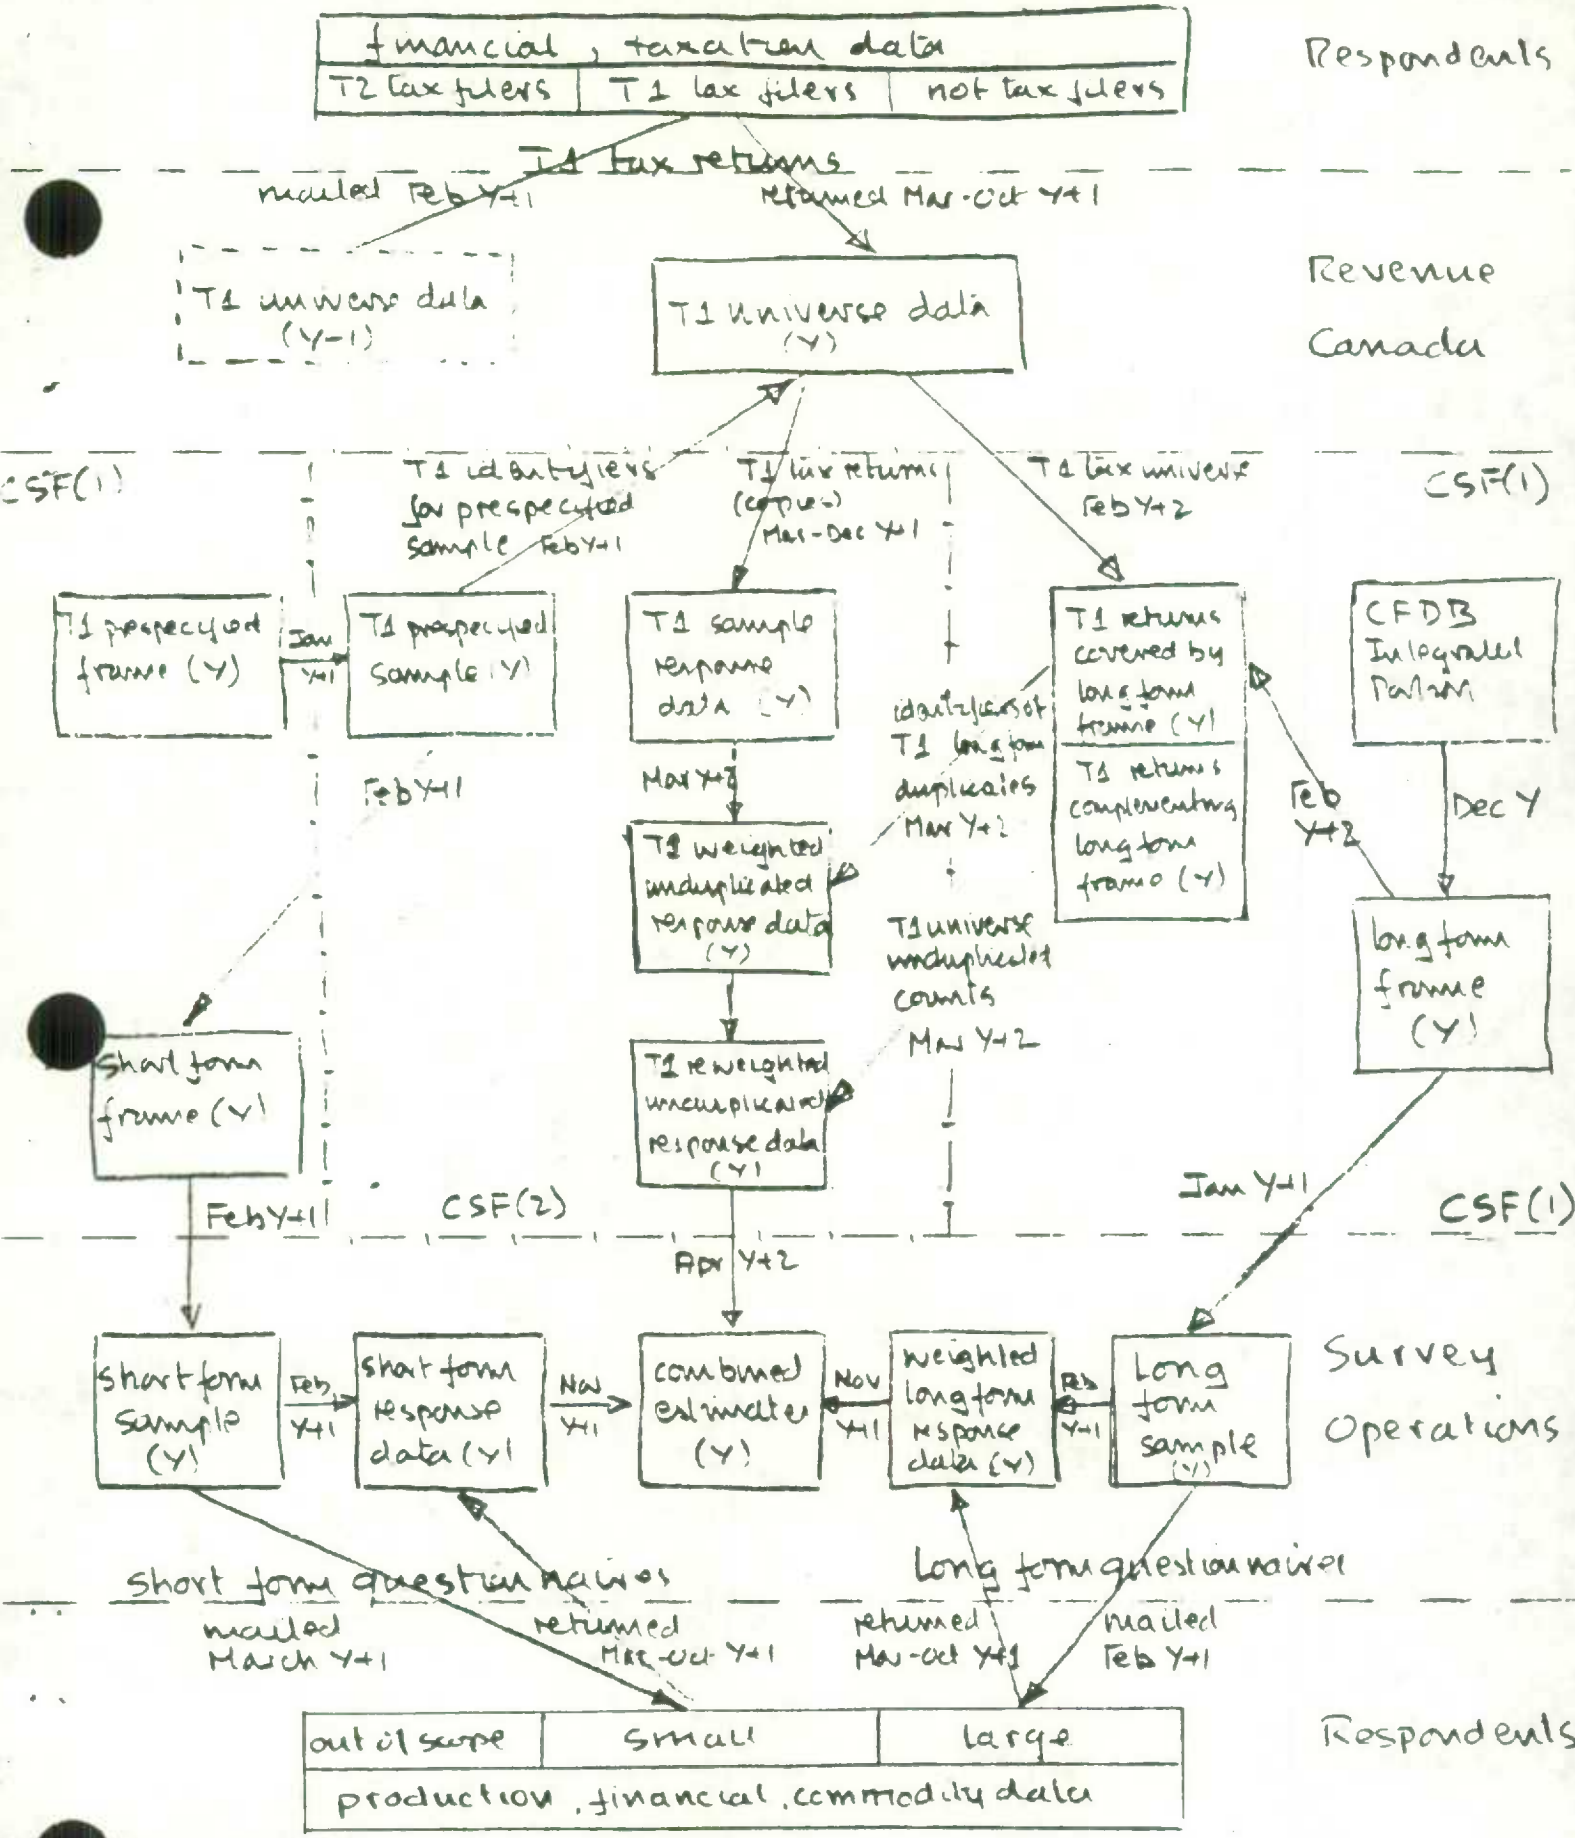 financial, taxation data
Respondents
T2 tax filers
T1 tax filers
not tax filers
T1 tax returns
mailed Feb Y+1
returned Mar-Oct Y+1
T1 universe data
(Y-1)
T1 universe data
(Y)
Revenue
Canada
CSF(1)
T1 identifiers
for prespecified
sample Feb Y+1
T1 tax returns
(copies)
Mar-Dec Y+1
T1 tax universe
Feb Y+2
CSF(1)
T1 prespecified
frame (Y)
Jan
Y+1
T1 prespecified
sample (Y)
T1 sample
response
data (Y)
T1 returns
covered by
long form
frame (Y)
CFDB
Integrated
Feb Y+1
Mar Y+2
identifiers of
T1 long form
duplicates
Mar Y+2
T1 returns
complementing
long form
frame (Y)
Feb
Y+2
Dec Y
T1 weighted
unduplicated
response data
(Y)
T1 universe
unduplicated
counts
Mar Y+2
long form
frame
(Y)
short form
frame (Y)
T1 reweighted
unduplicated
response data
(Y)
Feb Y+1
CSF(2)
Jan Y+1
CSF(1)
Apr Y+2
short form
sample
(Y)
Feb
Y+1
short form
response
data (Y)
Nov
Y+1
combined
estimates
(Y)
Nov
Y+1
weighted
long form
response
data (Y)
Feb
Y+1
Long
form
sample
(Y)
Survey
Operations
short form questionnaires
Long form questionnaires
mailed
March Y+1
returned
Mar-Oct Y+1
returned
Mar-Oct Y+1
mailed
Feb Y+1
out of scope
small
large
Respondents
production, financial, commodity data